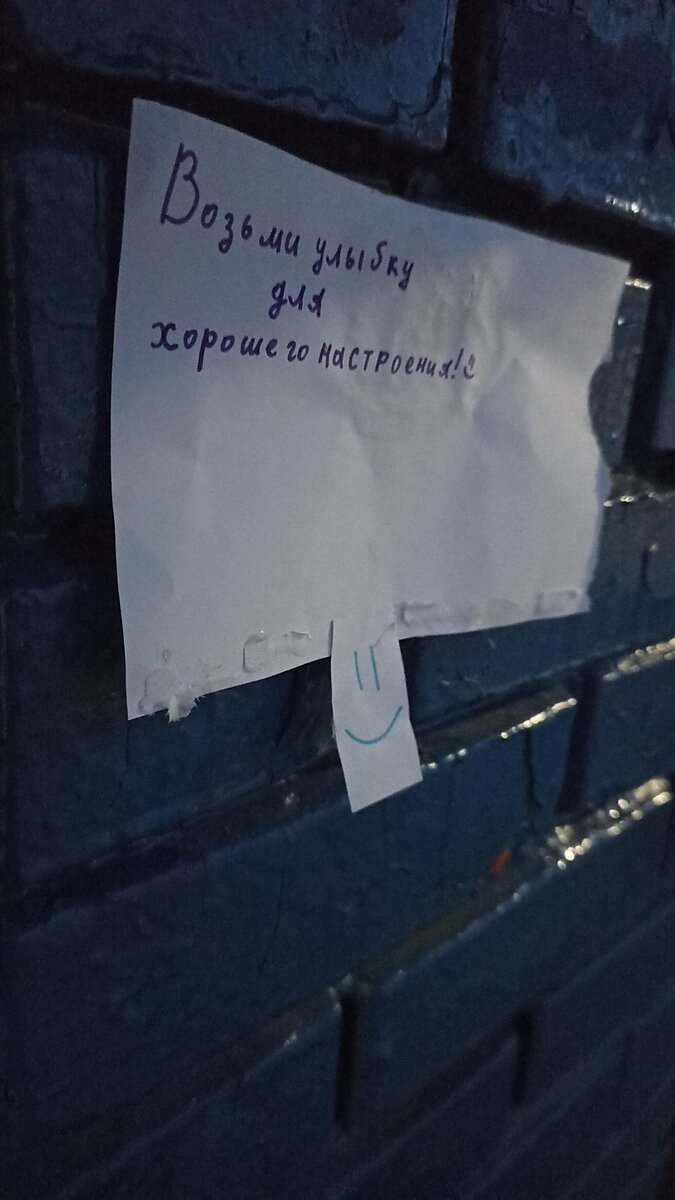 Возьми улыбку
для
хорошего настроения!